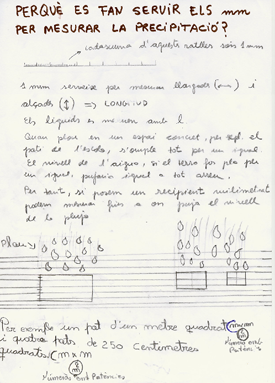 PERQUÈ ES FAN SERVIR ELS mm
PER MESURAR LA PRECIPITACIÓ?
cadascuna d'aquests ratlles són 1 mm
1 mm serveixe per mesurar llargades (cm) i
alçades (↕) => LONGITUD
Els líquids es mesuren amb l
Quan plou en un espai concret, per exepl. el
pati de l'escola, s'ompla tot per un igual.
El nivell de l'aigua, si el terra fos pla per
un igual, pujaria igual a tot arreu.
Per tant, si posem un recipient mil·limetrat
podrem mesurar fins a on puja el nivell
de la pluja
pluau
Per exemple un pat d'un metre quadrat (m x m
i quatre pats de 250 centímetres
quadrats (m x m